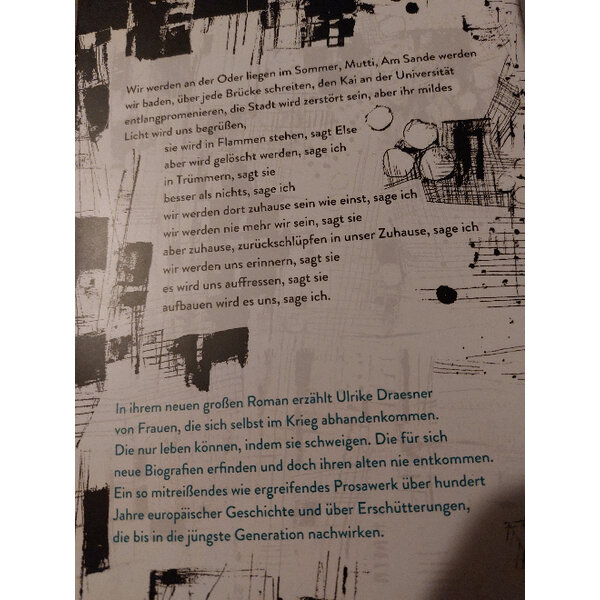 Wir werden an der Oder liegen im Sommer, Mutti, Am Sande werden
wir baden, über jede Brücke schreiten, den Kai an der Universität
entlangpromenieren, die Stadt wird zerstört sein, aber ihr mildes
Licht wird uns begrüßen,
sie wird in Flammen stehen, sagt Else
aber wird gelöscht werden, sage ich
in Trümmern, sagt sie
besser als nichts, sage ich
wir werden dort zuhause sein wie einst, sage ich
wir werden nie mehr wir sein, sagt sie
aber zuhause, zurückschlüpfen in unser Zuhause, sage ich
wir werden uns erinnern, sagt sie
es wird uns auffressen, sagt sie
aufbauen wird es uns, sage ich.
In ihrem neuen großen Roman erzählt Ulrike Draesner
von Frauen, die sich selbst im Krieg abhandenkommen.
Die nur leben können, indem sie schweigen. Die für sich
neue Biografien erfinden und doch ihren alten nie entkommen.
Ein so mitreißendes wie ergreifendes Prosawerk über hundert
Jahre europäischer Geschichte und über Erschütterungen,
die bis in die jüngste Generation nachwirken.